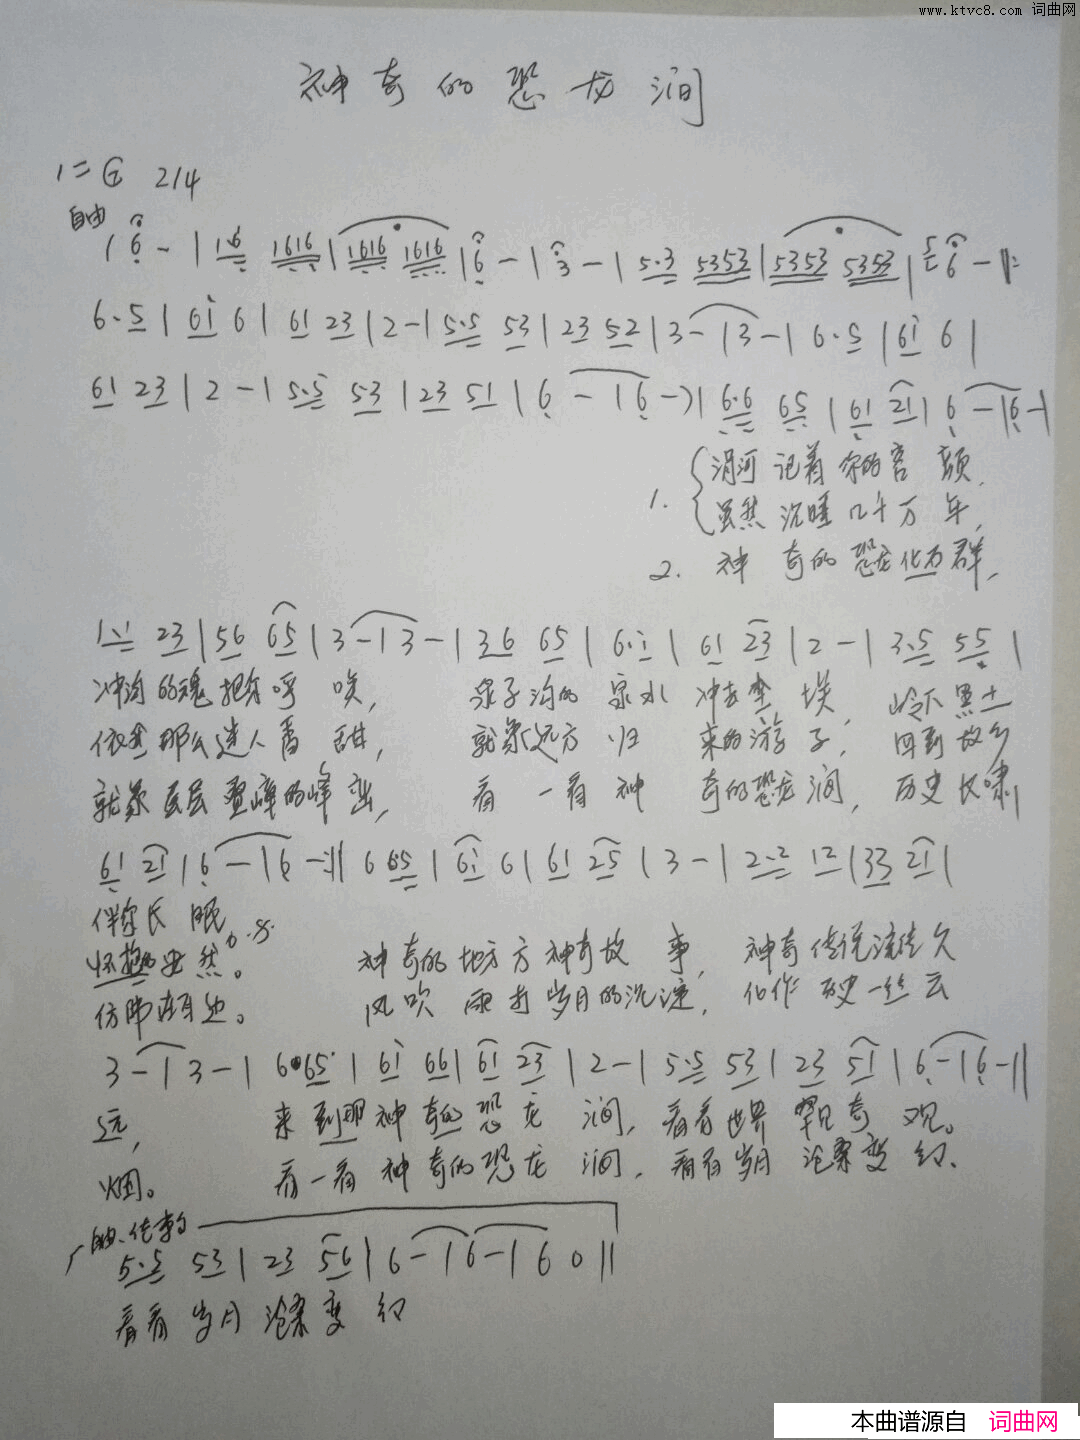 www.ktvc8.com 词曲网
神奇的恐龙涧
1=G 2/4
自由
1 6 - | 1·6 1616 | 1616 1616 | 6 - | 3 - | 5·3 5353 | 5353 5353 | 6 - ‖:
6·5 | 61 6 | 61 23 | 2 - | 5·5 53 | 23 52 | 3 - | 3 - | 6·5 | 61 6 |
61 23 | 2 - | 5·5 53 | 23 51 | 6 - | 6 -) | 6·6 65 | 61 21 | 6 - | 6 - |
1. 渭河记着你的容颜,
虽然沉睡几千万年,
2. 神奇的恐龙化石群,
1·1 23 | 56 65 | 3 - | 3 - | 36 65 | 6·1 | 61 23 | 2 - | 3·5 55 |
冲沟的魂把你呼唤, 泉子沟的泉水冲去尘埃, 岭下黑土
依然那么迷人香甜, 就象远方归来的游子, 回到故乡
就象层层叠嶂的峰峦, 看一看神奇的恐龙涧, 历史长啸
61 21 | 6 - | 6 - :‖ 6 65 | 61 6 | 61 25 | 3 - | 2·2 12 | 33 21 |
伴你长眠。
怀抱安然。 D.S.
神奇的地方神奇故事, 神奇传说流传久
仿佛在耳边。 风吹雨打岁月的沉淀, 化作历史一丝云
3 - | 3 - | 6·65 | 61 66 | 61 23 | 2 - | 5·5 53 | 23 51 | 6 - | 6 - ‖
远, 来到那神奇的恐龙涧, 看看世界罕见奇观。
烟。 看一看神奇的恐龙涧, 看看岁月沧桑变幻.
5·5 53 | 23 56 | 6 - | 6 - | 6 0 ‖
看看岁月沧桑变幻
本曲谱源自 词曲网